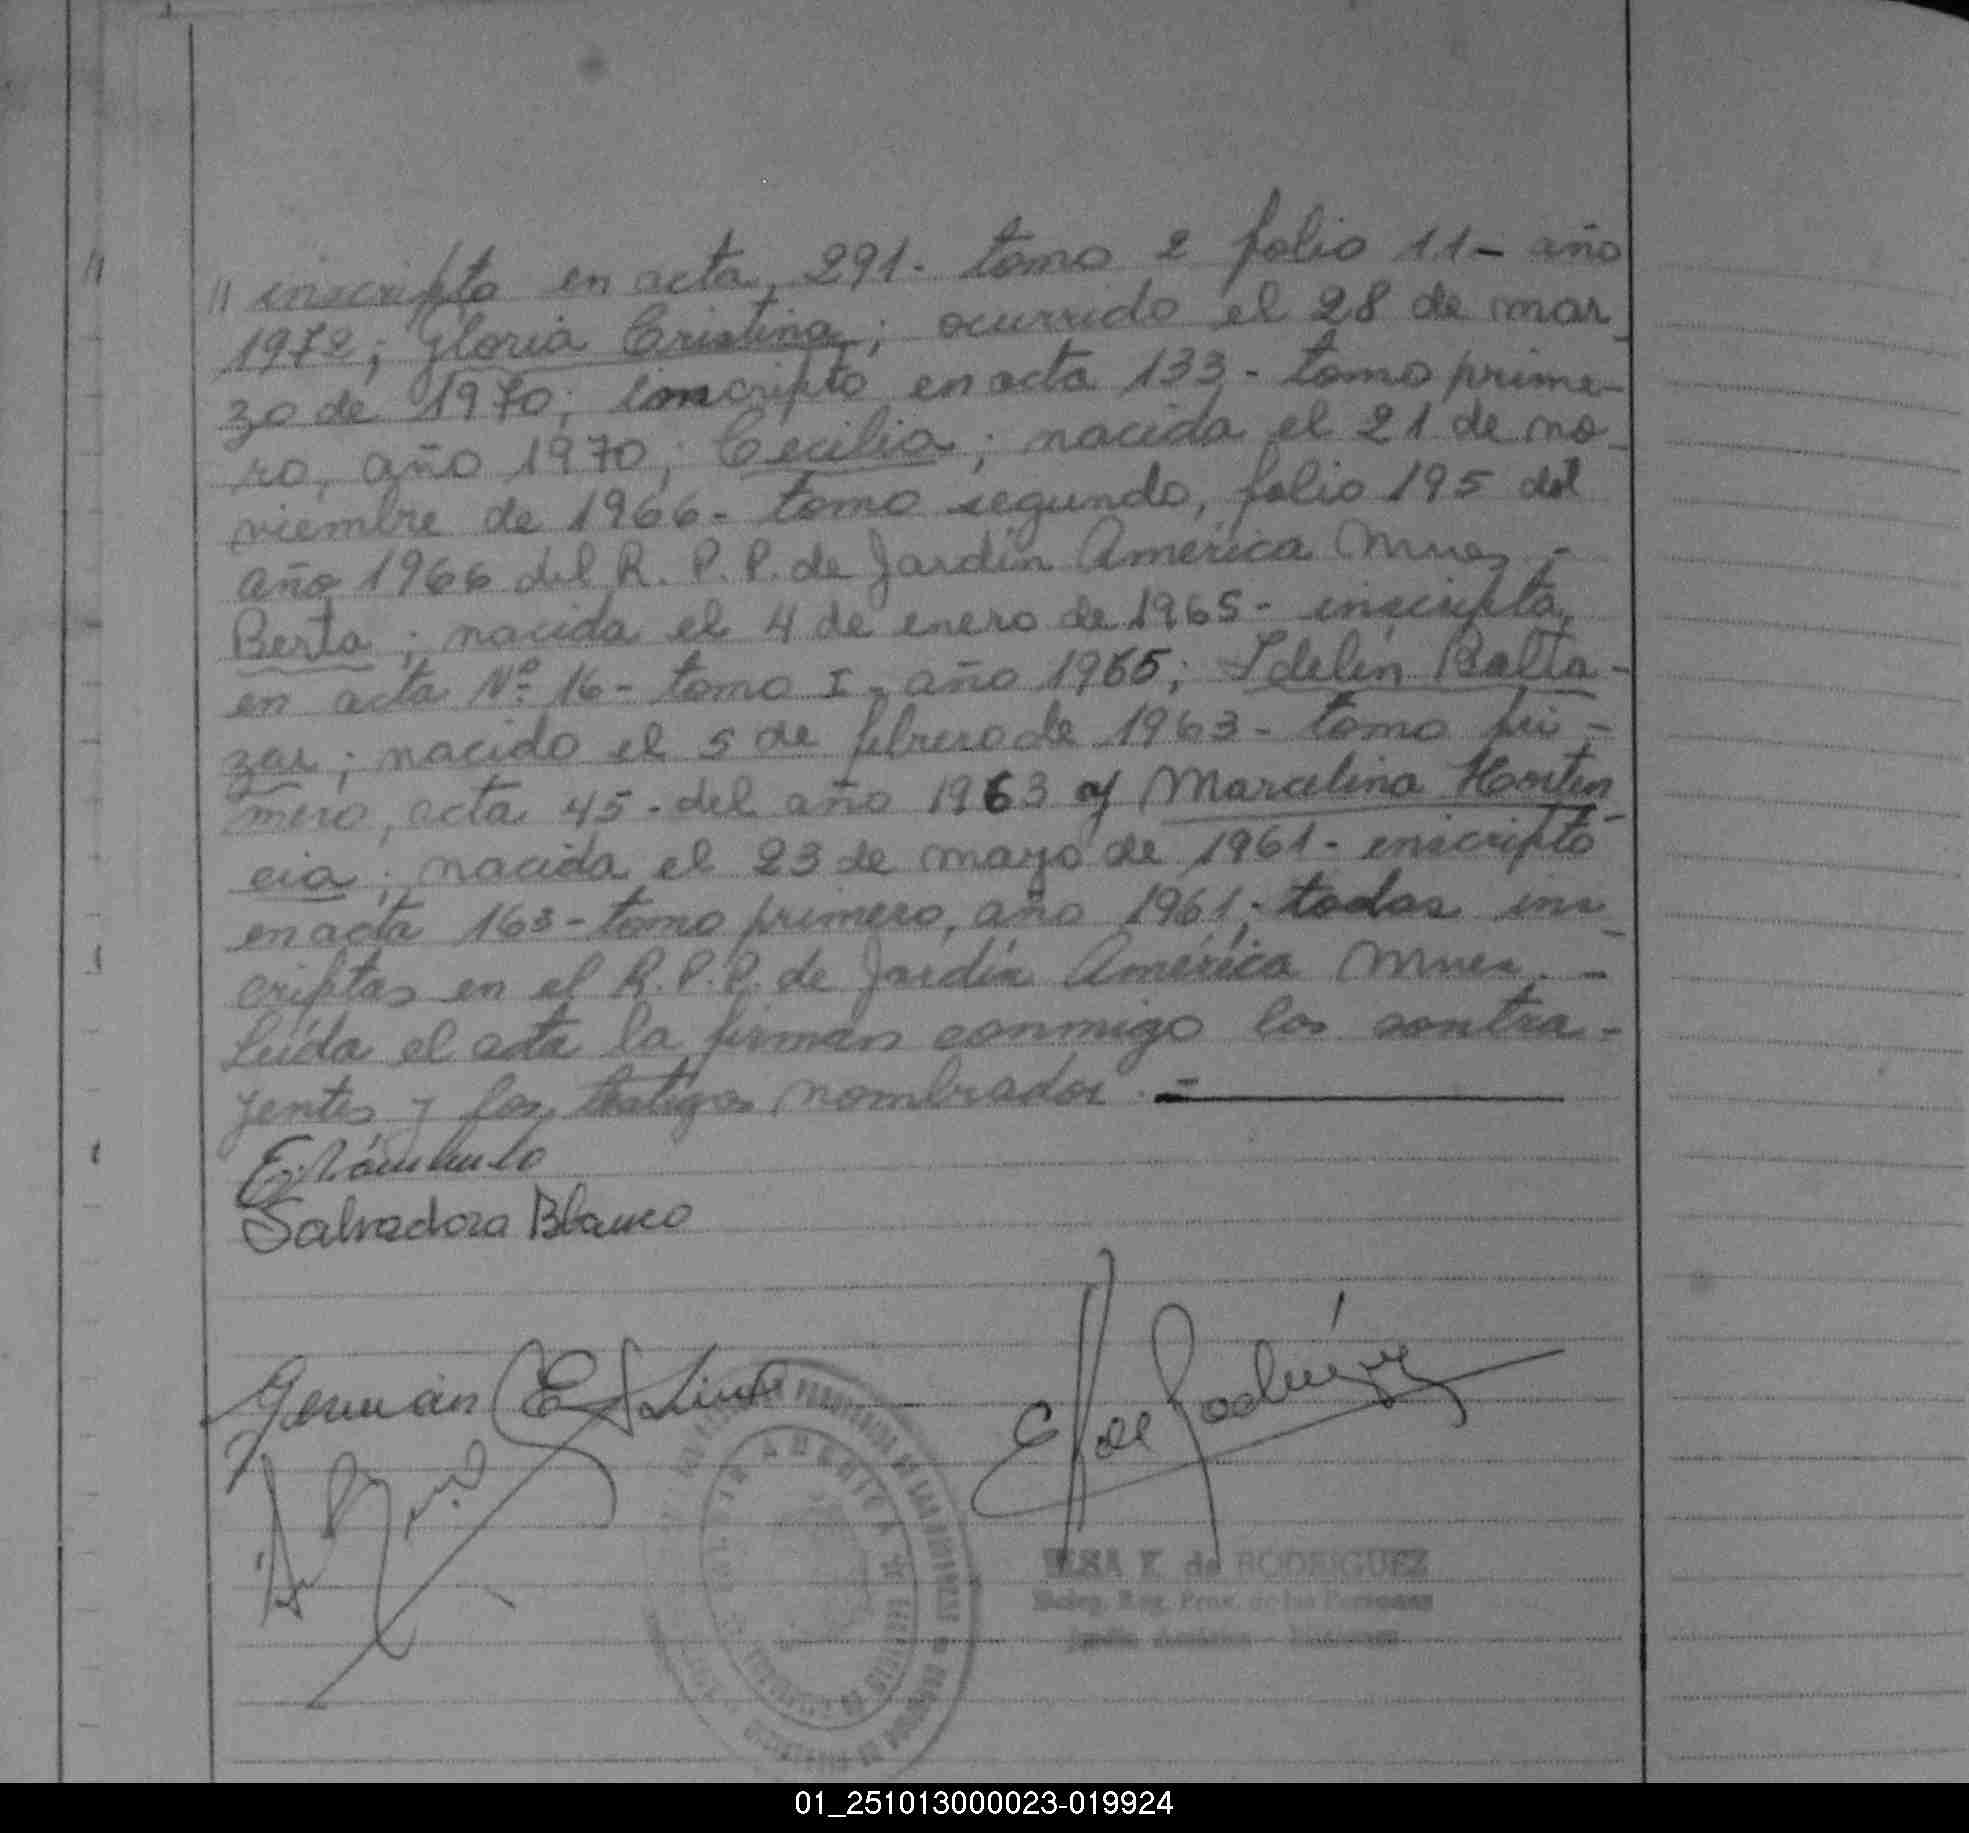 // inscripto en acta 291- tomo 2 folio 11- año
1972; Gloria Cristina; ocurrido el 28 de mar
zo de 1970; inscripto en acta 133- tomo prime-
ro, año 1970; Cecilia; nacida el 21 de no-
viembre de 1966- tomo segundo, folio 195 del
año 1966 del R. P. P. de Jardín América Mnes -
Berta; nacida el 4 de enero de 1965- inscripta
en acta Nº 16- tomo I- año 1965; Idelin Balta-
zar; nacido el 5 de febrero de 1963- tomo pri-
mero, acta 45- del año 1963 y Marcelina Horten
cia; nacida el 23 de mayo de 1961- inscripto
en acta 163- tomo primero, año 1961; todas ins-
criptas en el R. P. P. de Jardín América Mnes. -
Leída el acta la firman conmigo los contra-
yentes y los testigos nombrados. -
Salvadora Blanco
Germán
E de Rodríguez
ELSA K. de RODRIGUEZ
Deleg. Reg. Prov. de las Personas
Jardín América - Misiones
01_251013000023-019924